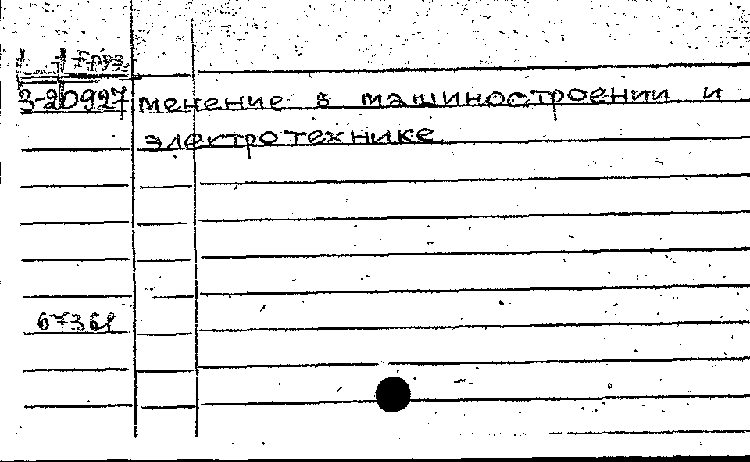 Груз.
3-20927 менение в машиностроении и
электротехнике